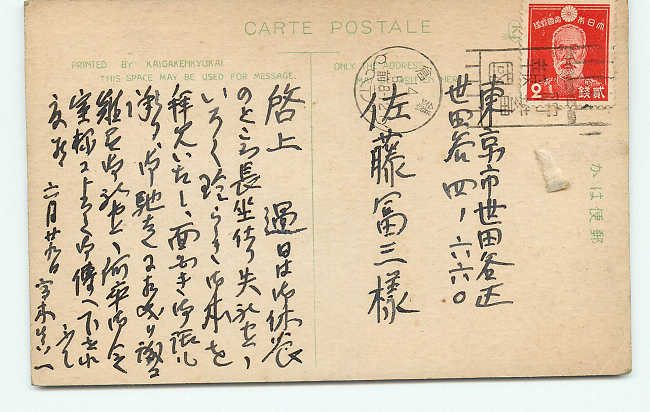 CARTE POSTALE
PRINTED BY KAIGAKENKYUKAI
THIS SPACE MAY BE USED FOR MESSAGE.
ONLY THE ADDRESS
日本帝国郵便
2
銭
貳
郵便はか
東京市世田谷区
世田谷四ノ六六〇
佐藤冨三様
啓上 過日は御休養
のところ長坐仕り失礼仕候
いろいろ珍らしき御本を
拝見いたし、面白き御話も
承り、御馳走にあづかり誠に
難有御礼申上候 何卒御令
室様によろしく御伝へ下され
六月廿九日